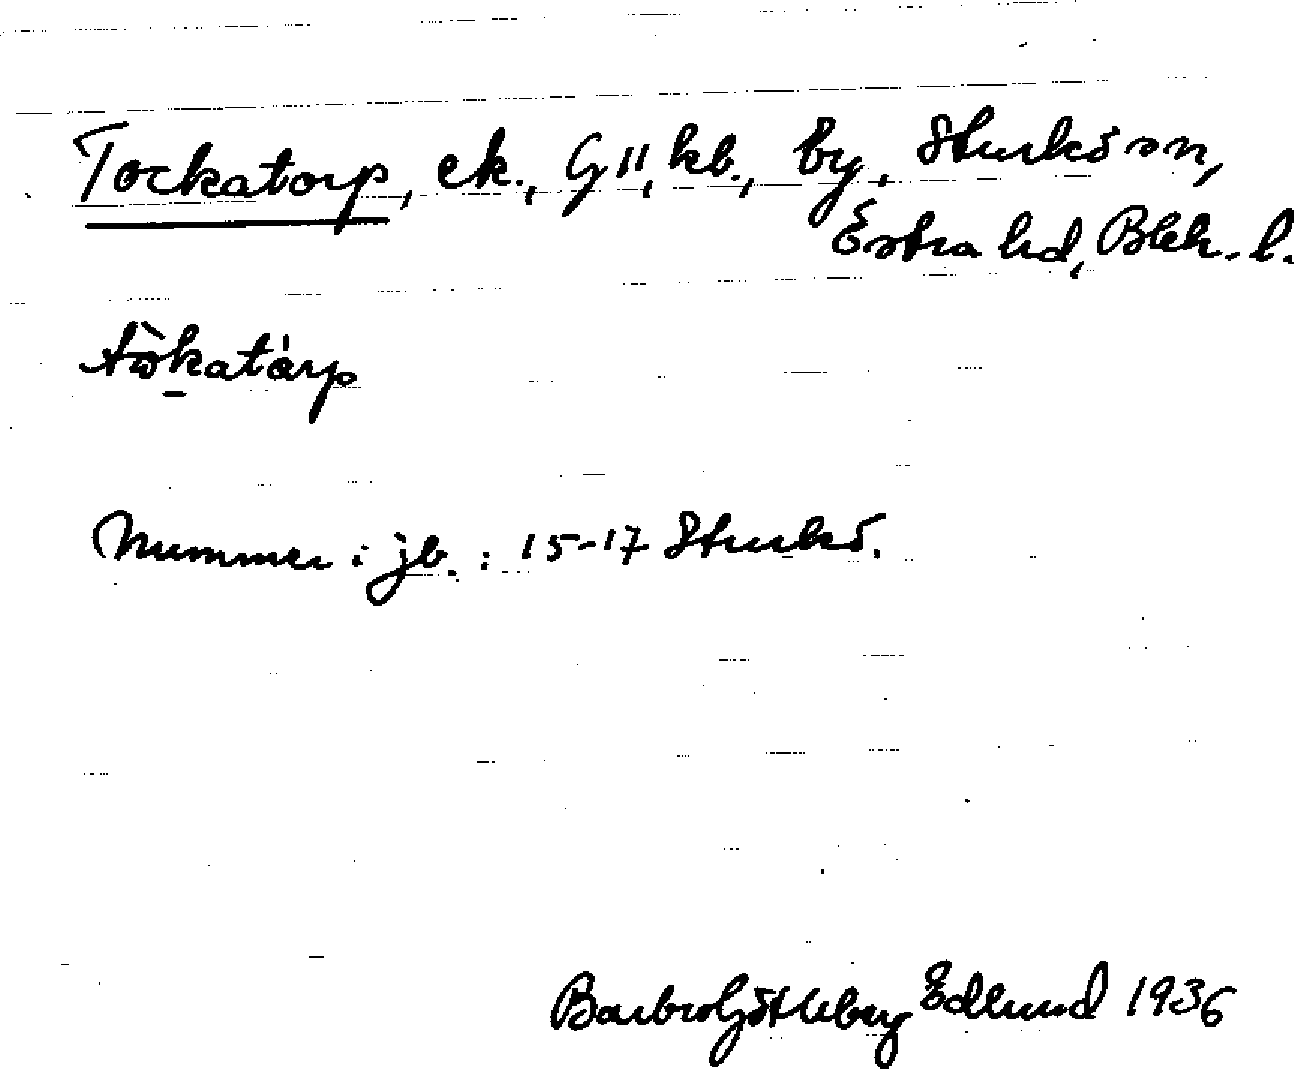 Tockatorp, ek., G II, kb., by, Sturkö sn,
Östra hd, Blek. l.
tòkatàrp
Nummer i jb.: 15-17 Sturkö.
Barbro Götleberg Edlund 1936